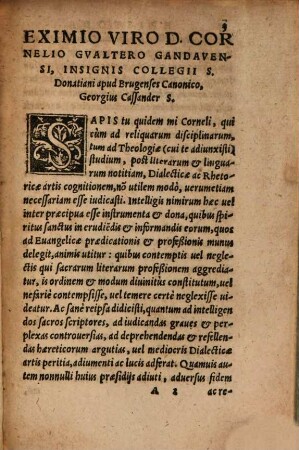 3
EXIMIO VIRO D. COR
NELIO GVALTERO GANDAVEN-
SI, INSIGNIS COLLEGII S.
Donatiani apud Brugenses Canonico,
Georgius Cassander S.
SAPIS tu quidem mi Corneli, qui
cùm ad reliquarum disciplinarum,
tum ad Theologiæ (cui te adiunxisti)
studium, post literarum & lingua-
rum notitiam, Dialecticæ ac Rheto-
ricæ artis cognitionem, nō utilem modò, uerumetiam
necessariam esse iudicasti. Intelligis nimirum hæc uel
inter præcipua esse instrumenta & dona, quibus spi-
ritus sanctus in erudiēdis & informandis eorum, quos
ad Euangelicæ prædicationis & professionis munus
delegit, animis utitur: quibus contemptis uel negle-
ctis qui sacrarum literarum professionem aggredia-
tur, is ordinem & modum diuinitus constitutum, uel
nefariè contempsisse, uel temere certè neglexisse ui-
deatur. Ac sanè reipsa didicisti, quantum ad intelligen
dos sacros scriptores, ad iudicandas graues & per-
plexas controuersias, ad deprehendendas & refellen-
das hæreticorum argutias, uel mediocris Dialecticæ
artis peritia, adiumenti ac lucis adferat. Quamuis au-
tem nonnulli huius præsidijs adiuti, aduersus fidem
A 2 ac re-